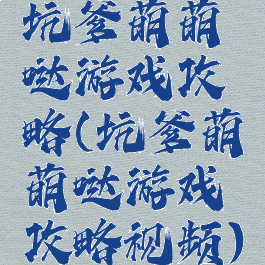 坑爹萌萌
哒游戏攻
略(坑爹萌
萌哒游戏
攻略视频)